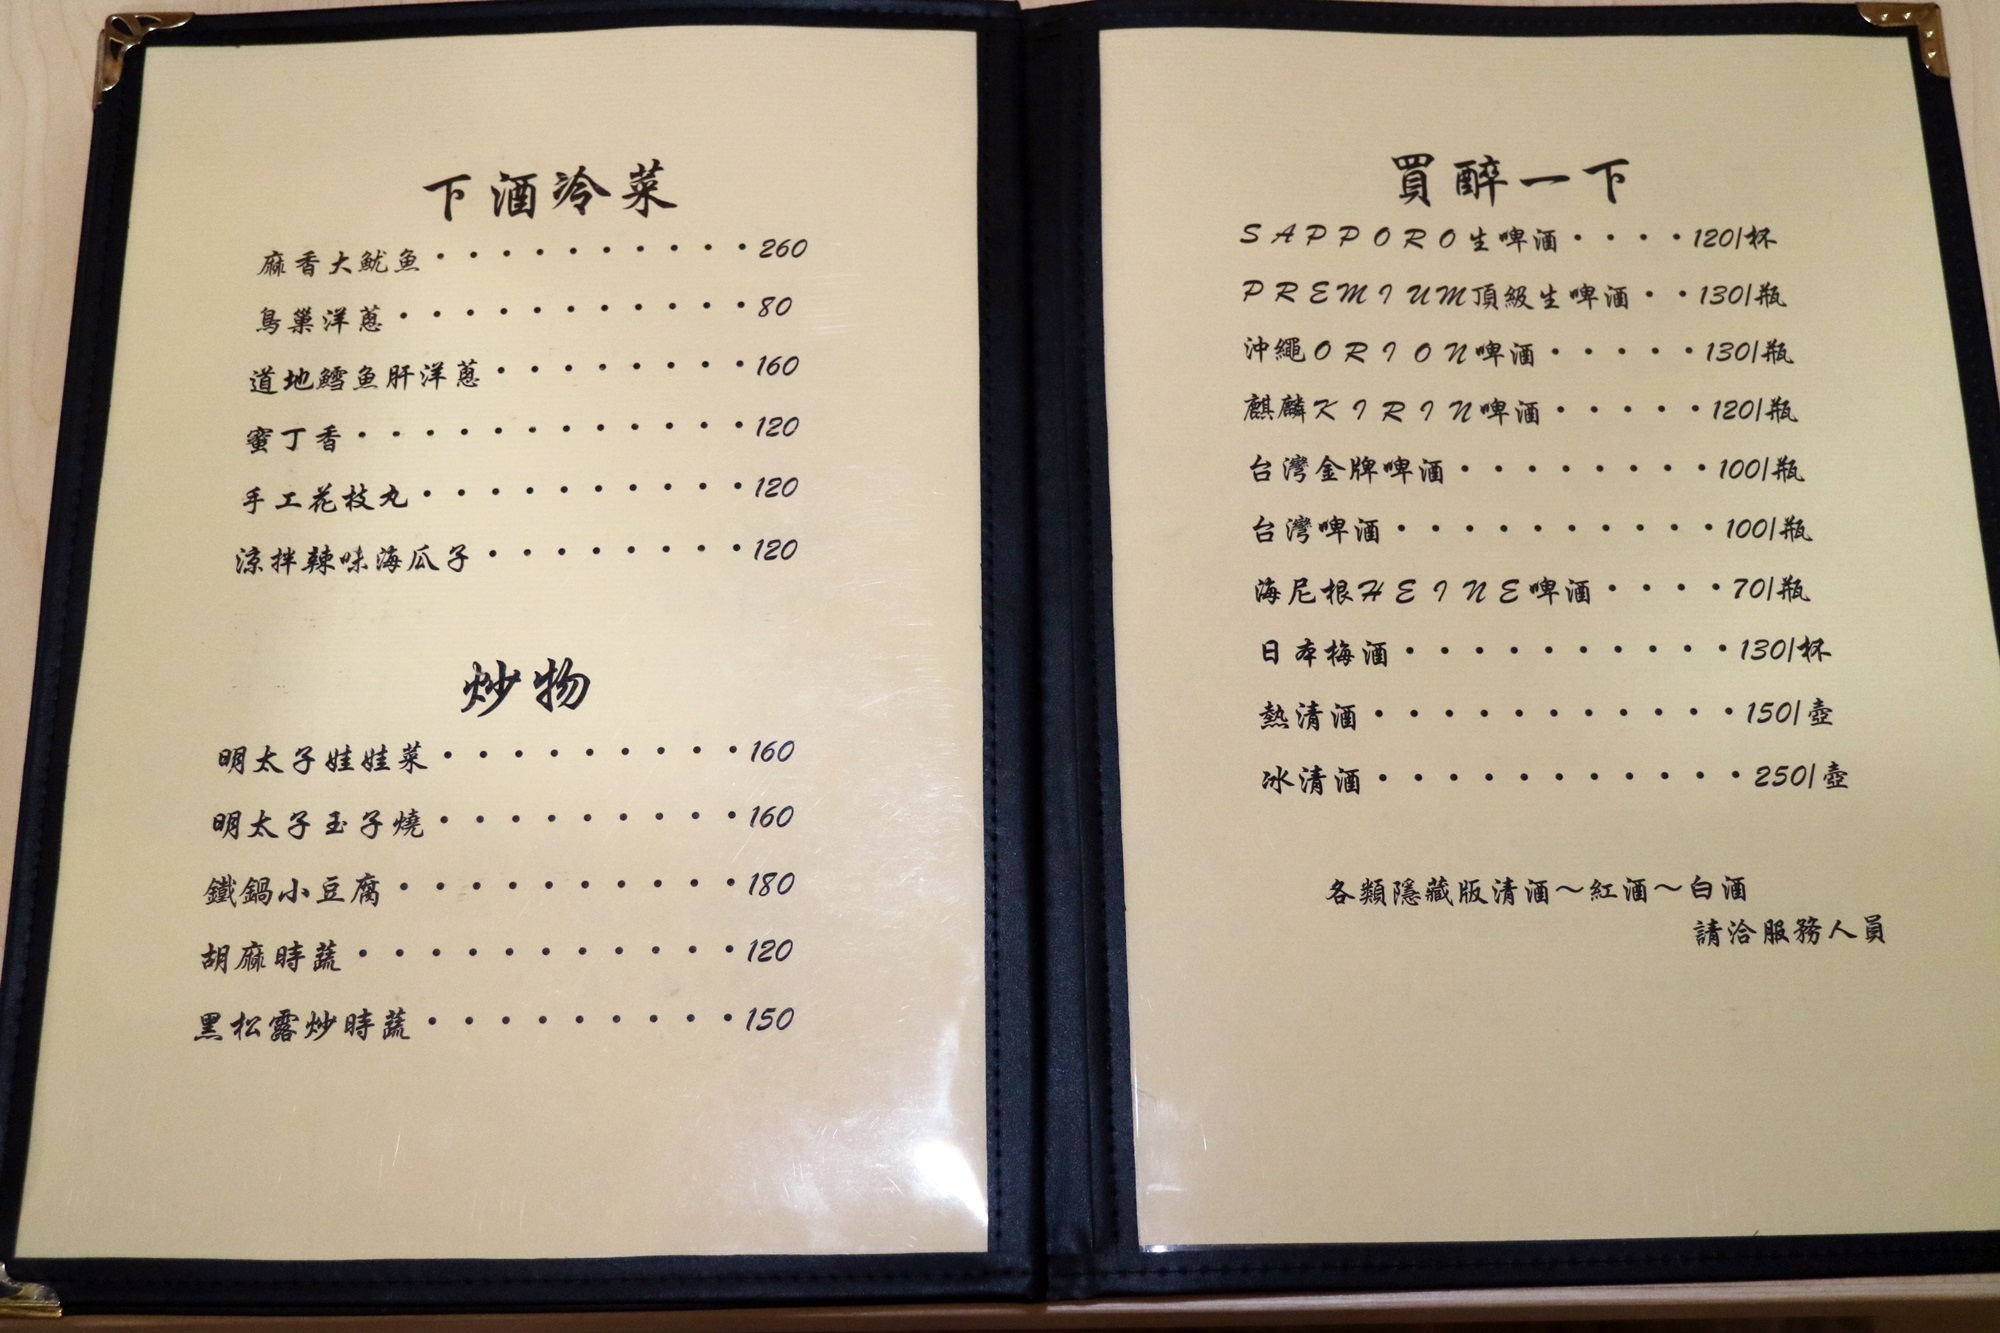 下酒冷菜
麻香大魷魚・・・・・・・・・・260
鳥巢洋蔥・・・・・・・・・・・80
道地鱈魚肝洋蔥・・・・・・・・160
蜜丁香・・・・・・・・・・・・120
手工花枝丸・・・・・・・・・・120
涼拌辣味海瓜子・・・・・・・・120
炒物
明太子娃娃菜・・・・・・・・・160
明太子玉子燒・・・・・・・・・160
鐵鍋小豆腐・・・・・・・・・・180
胡麻時蔬・・・・・・・・・・・120
黑松露炒時蔬・・・・・・・・・150
買醉一下
SAPPORO生啤酒・・・・120/杯
PREMIUM頂級生啤酒・・130/瓶
沖繩ORION啤酒・・・・・130/瓶
麒麟KIRIN啤酒・・・・・120/瓶
台灣金牌啤酒・・・・・・・・100/瓶
台灣啤酒・・・・・・・・・・100/瓶
海尼根HEINE啤酒・・・・70/瓶
日本梅酒・・・・・・・・・・130/杯
熱清酒・・・・・・・・・・・150/壺
冰清酒・・・・・・・・・・・250/壺
各類隱藏版清酒～紅酒～白酒
請洽服務人員